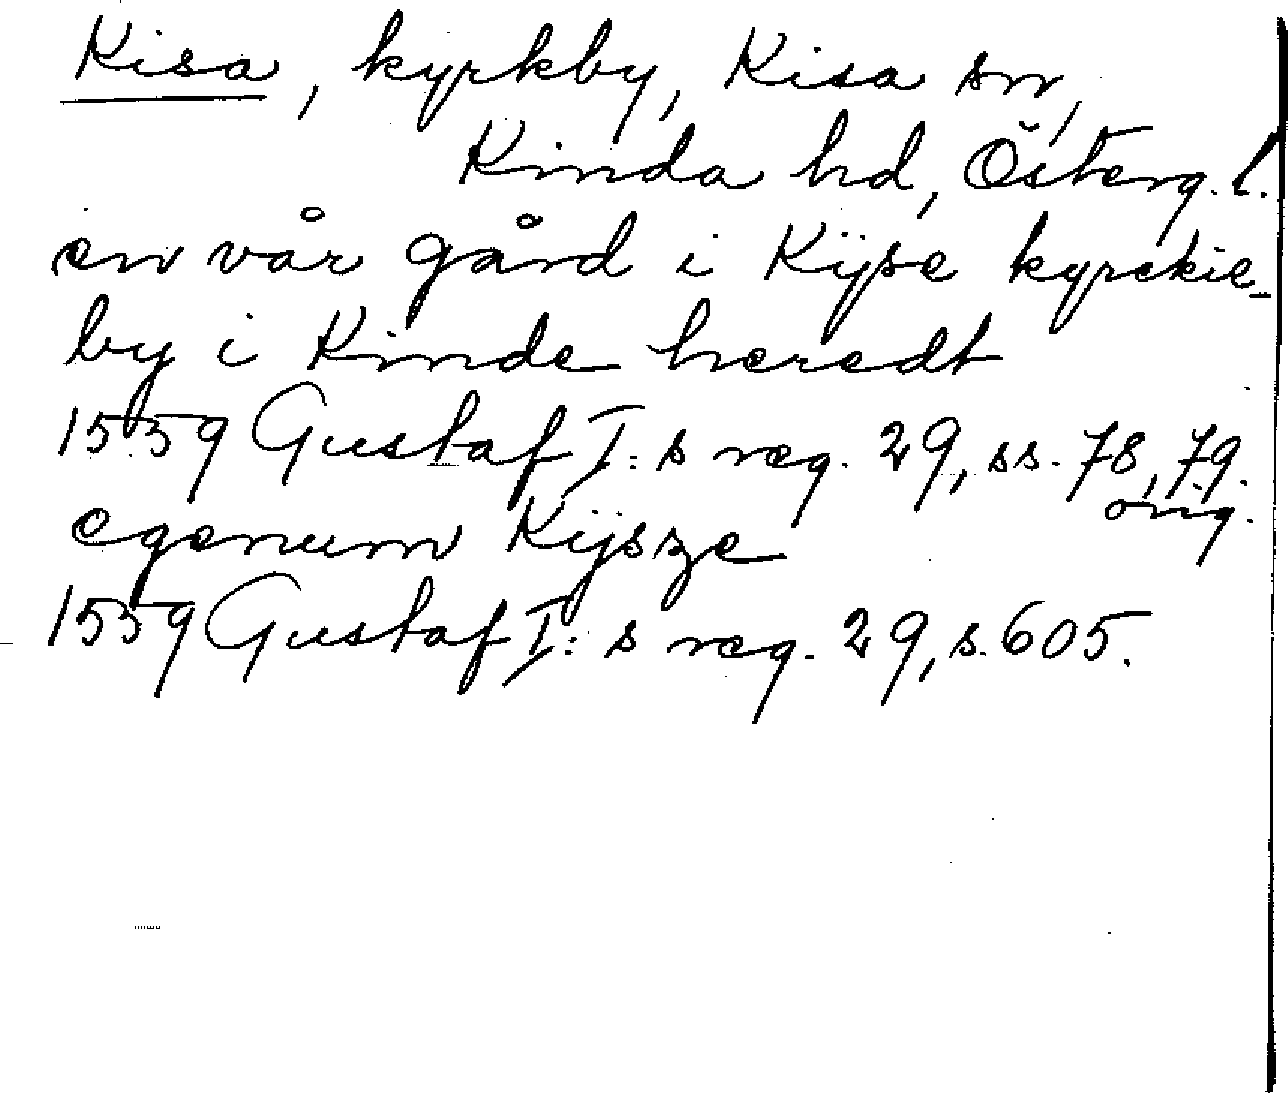 Kisa, kyrkby, Kisa sn,
Kinda hd, Österg. l.
en vår gård i Kÿse kyrckie-
by i Kinde heredt
1559 Gustaf I:s reg. 29, ss. 78, 79.
orig.
egenum Kÿsze
1559 Gustaf I:s reg. 29, s. 605.